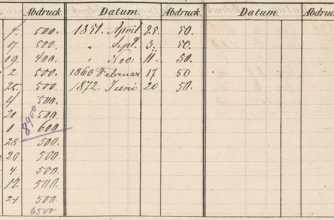 Abdruck. Datum. Abdruck. Datum. Abdruck.
7. 500. 1851. April 25. 50.
17. 500. " Sept. 3. 50.
19. 400. " Nov. 11. 50.
2 500. 1860 Februar 17 50
25. 500. 1872. Juni 20 50.
500.
20 500.
1 600.
8900
25 500.
20 500.
4 500.
12 500.
24 500.
6500